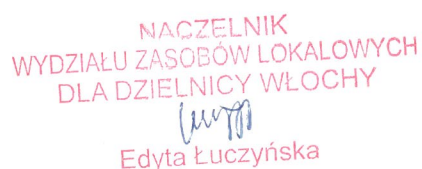 NACZELNIK
WYDZIAŁU ZASOBÓW LOKALOWYCH
DLA DZIELNICY WŁOCHY
Edyta Łuczyńska